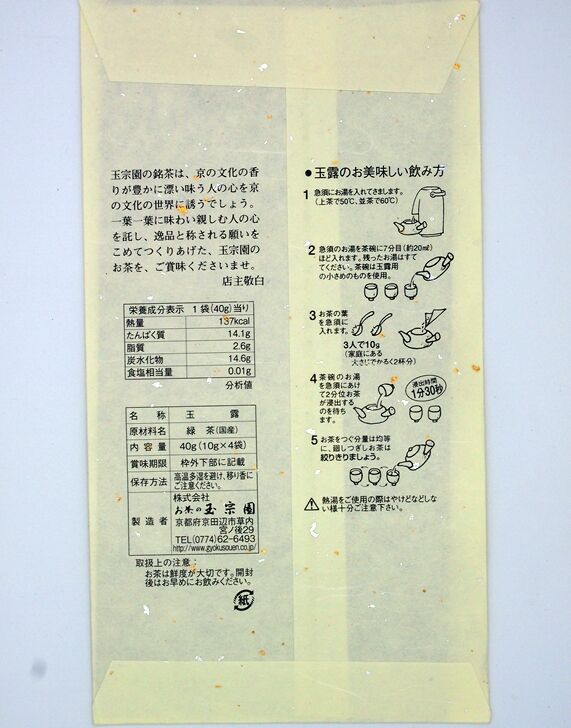 玉宗園の銘茶は、京の文化の香
りが豊かに漂い味う人の心を京
の文化の世界に誘うでしょう。
一葉一葉に味わい親しむ人の心
を託し、逸品と称される願いを
こめてつくりあげた、玉宗園の
お茶を、ご賞味くださいませ。
店主敬白
栄養成分表示 1袋(40g)当り
熱量 137kcal
たんぱく質 14.1g
脂質 2.6g
炭水化物 14.6g
食塩相当量 0.01g
分析値
名称 玉露
原材料名 緑茶(国産)
内容量 40g(10g×4袋)
賞味期限 枠外下部に記載
保存方法 高温多湿を避け、移り香に
ご注意ください。
製造者 株式会社
お茶の玉宗園
京都府京田辺市草内
宮ノ後29
TEL(0774)62-6493
http://www.gyokusouen.co.jp/
取扱上の注意:
お茶は鮮度が大切です。開封
後はお早めにお飲みください。
紙
●玉露のお美味しい飲み方
1 急須にお湯を入れてさまします。
(上茶で50℃、並茶で60℃)
2 急須のお湯を茶碗に7分目(約20㎖)
ほど入れます。残ったお湯はすて
てください。茶碗は玉露用
の小さめのものを使用。
3 お茶の葉
を急須に
入れます。
3人で10g
(家庭にある
大さじでかるく2杯分)
4 茶碗のお湯
を急須にあけ
て2分位お茶
が浸出する
のを待ち
ます。
浸出時間
1分30秒
5 お茶をつぐ分量は均等
に、廻しつぎしお茶は
絞りきりましょう。
熱湯をご使用の際はやけどなどしな
い様十分ご注意下さい。